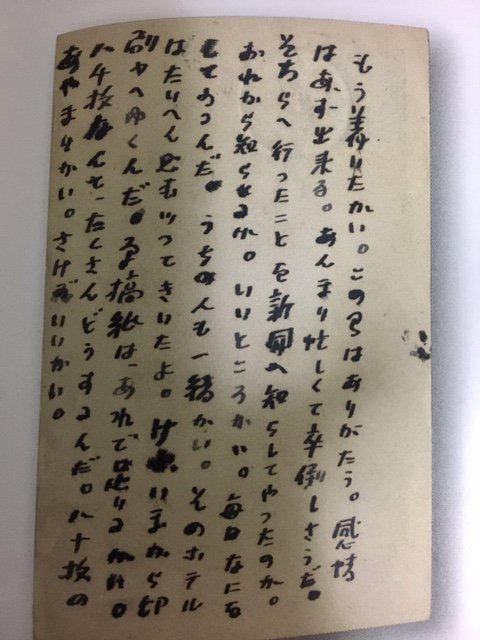 もう着いたかい。この間はありがたう。感情
はあす出来る。あんまり忙しくて卒倒しさうだ。
そちらへ行ったことを新聞へ知らしてやったのか。
おれから知らせるか。いいところかい。毎日なにを
してゐるんだ。うちの人も一緒かい。そのホテル
はたいへん さむいってきいたよ。けふいまから印
刷やへゆくんだ。原稿紙は、あれでは足りるかい。
八千枚なんて、たくさんどうするんだ。八十枚の
あやまりかい。さけぎいいかい。